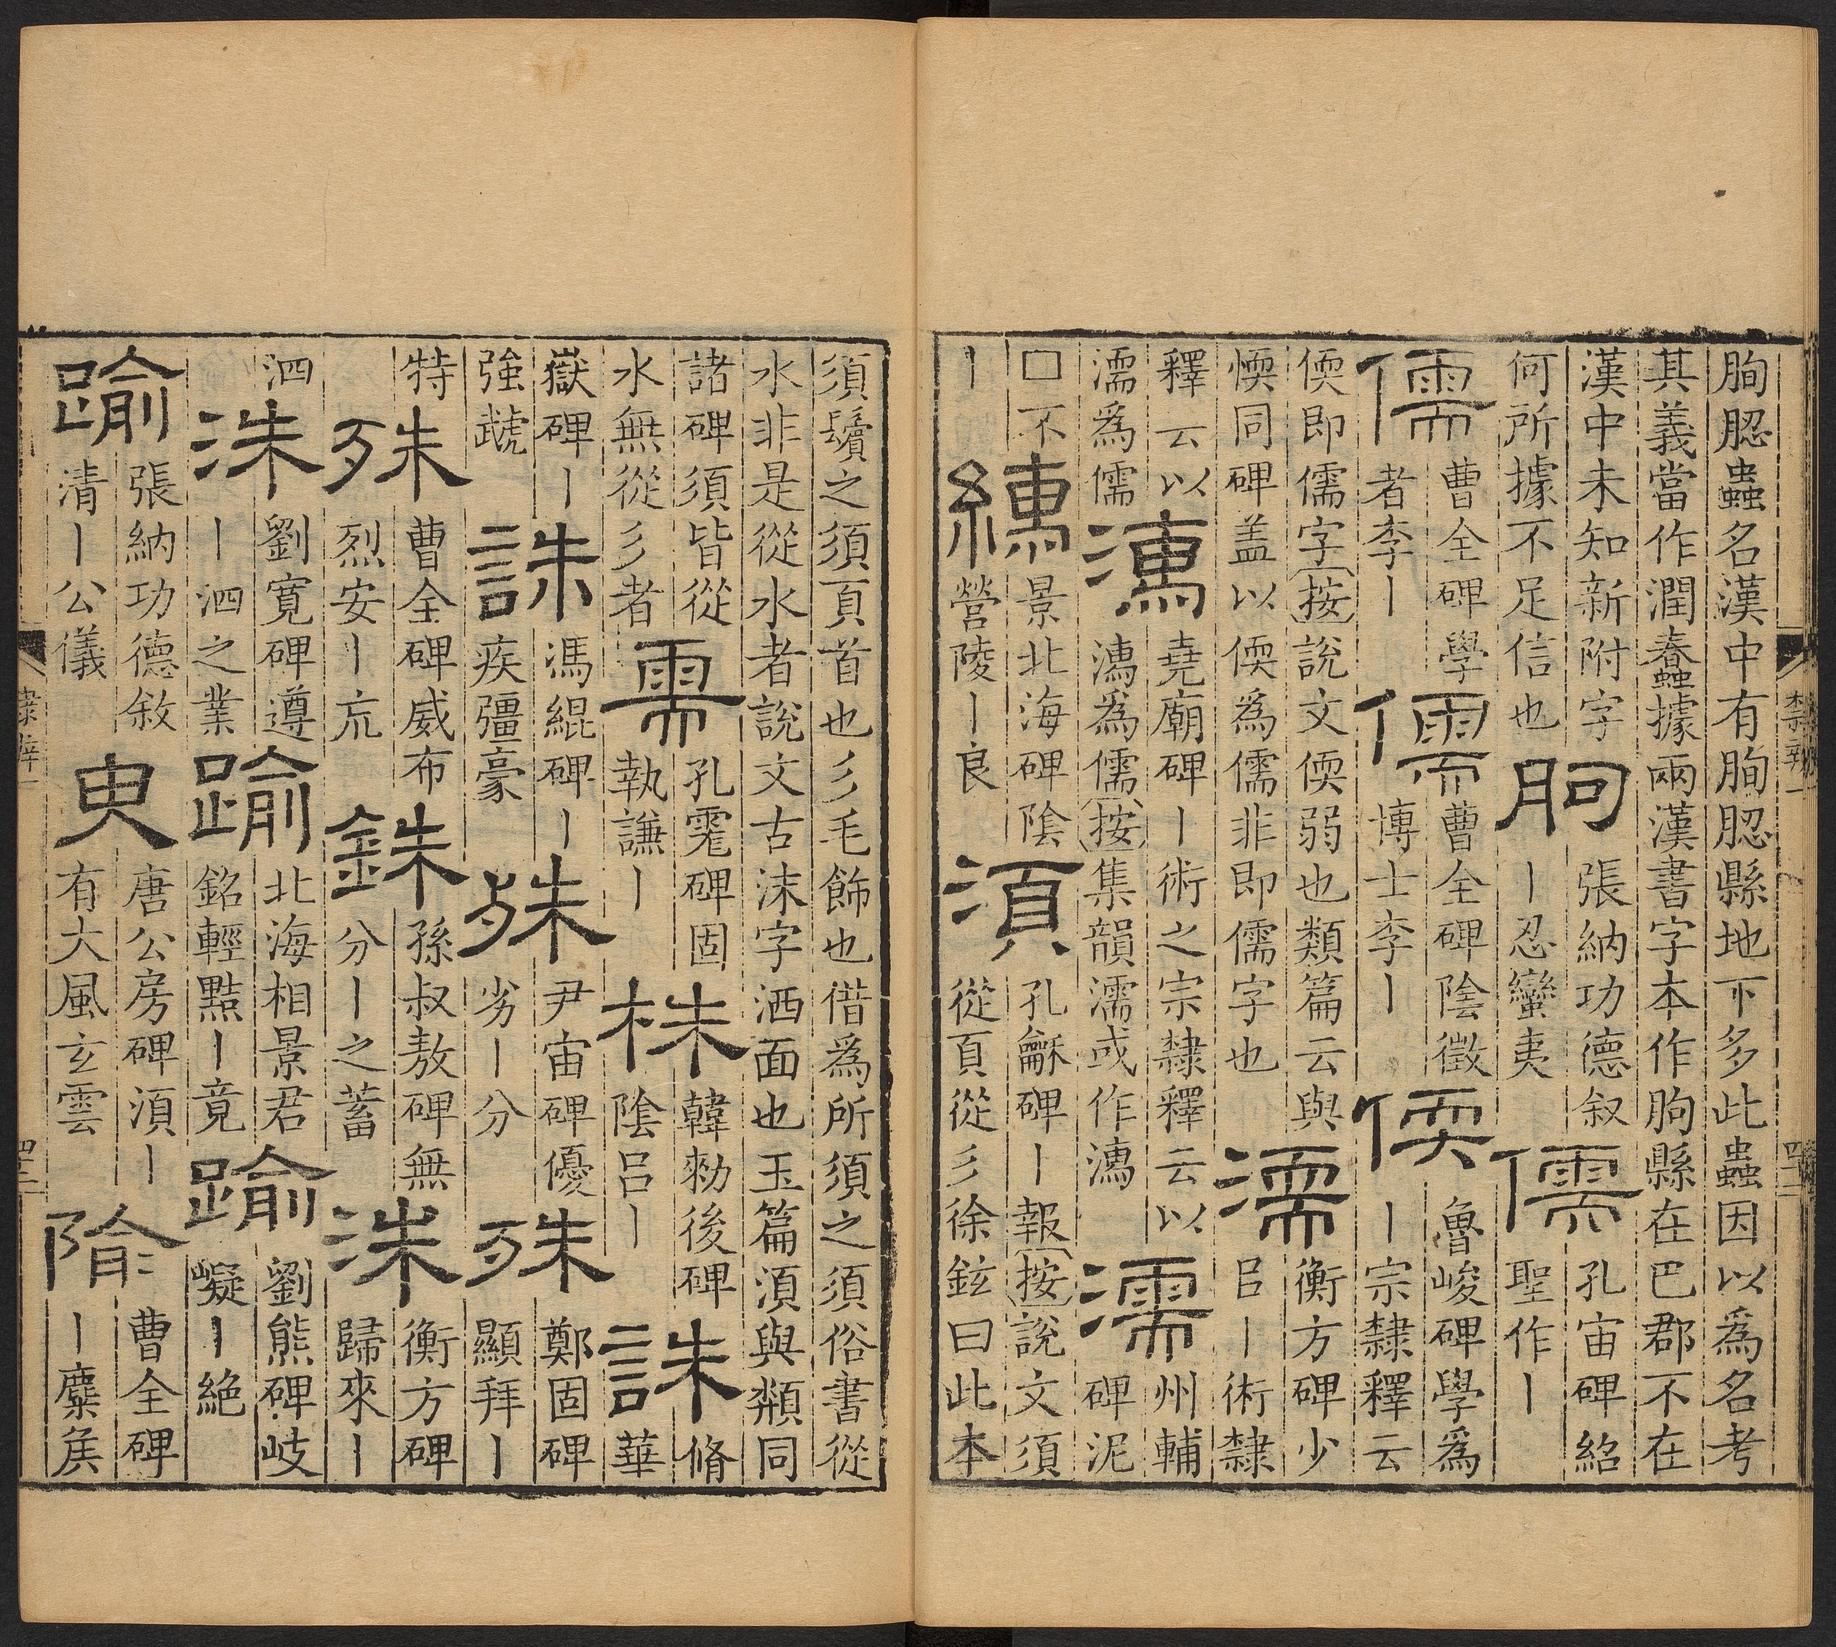 朐䏰蟲名漢中有朐䏰縣地下多此蟲因以為名考
其義當作潤蠢據兩漢書字本作朐縣在巴郡不在
漢中未知新附字
何所據不足信也
朐
張納功德叙
丨忍蠻夷
儒
孔宙碑紹
聖作丨
儒
曹全碑學
者李丨
儒
曹全碑陰徵
博士李丨
偄
魯峻碑學為
丨宗隸釋云
偄即儒字按說文偄弱也類篇云與
愞同碑盖以偄為儒非即儒字也
濡
衡方碑少
吕丨術隸
釋云以
濡為儒
㵖
堯廟碑丨術之宗隸釋云以
㵖為儒按集韻濡或作㵖
濡
州輔
碑泥
□不
丨
繻
景北海碑陰
營陵丨良
湏
孔龢碑丨報按說文須
從頁從彡徐鉉曰此本
隸辨一
四十二
須鬚之須頁首也彡毛飾也借為所須之須俗書從
水非是從水者說文古沬字洒面也玉篇湏與頮同
諸碑須皆從
水無從彡者
需
孔霮碑固
執謙丨
株
韓勑後碑
陰吕丨
誅
脩華
嶽碑丨
強虣
誅
馮緄碑丨
疾彊豪
殊
尹宙碑優
劣丨分
殊
鄭固碑
顯拜丨
特
殊
曹全碑威布
烈安丨亢
銖
孫叔敖碑無
分丨之蓄
洙
衡方碑
歸來丨
泗
洙
劉寬碑遵
丨泗之業
踰
北海相景君
銘輕黠丨竟
踰
劉熊碑岐
嶷丨絶
踰
張納功德敘
清丨公儀
臾
唐公房碑湏丨
有大風玄雲
隃
曹全碑
丨麋矦